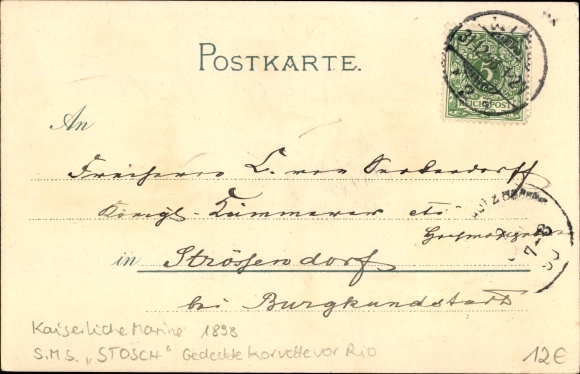 POSTKARTE.
5
REICHSPOST
An
Freiherrn C. von
Königl. Kämmerer etc.
in Strössendorf
bei Burgkundstadt
7-8
Kaiserliche Marine 1898
S.M.S. „STOSCH" Gedeckte Korvette vor Rio
12€